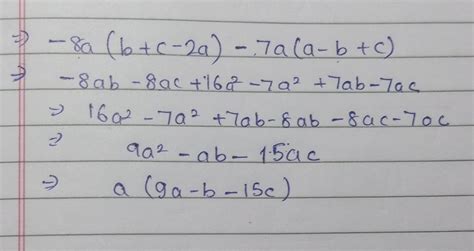 ⇒ -8a (b+c-2a) - 7a(a-b+c)
⇒ -8ab -8ac +16a² -7a² +7ab -7ac
⇒ 16a² -7a² +7ab-8ab -8ac-7ac
⇒ 9a² -ab -15ac
⇒ a (9a-b-15c)